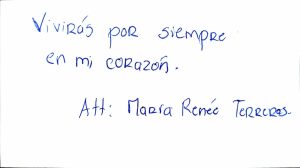 Vivirás por siempre
en mi corazón.
Att: María Reneé Terreros.